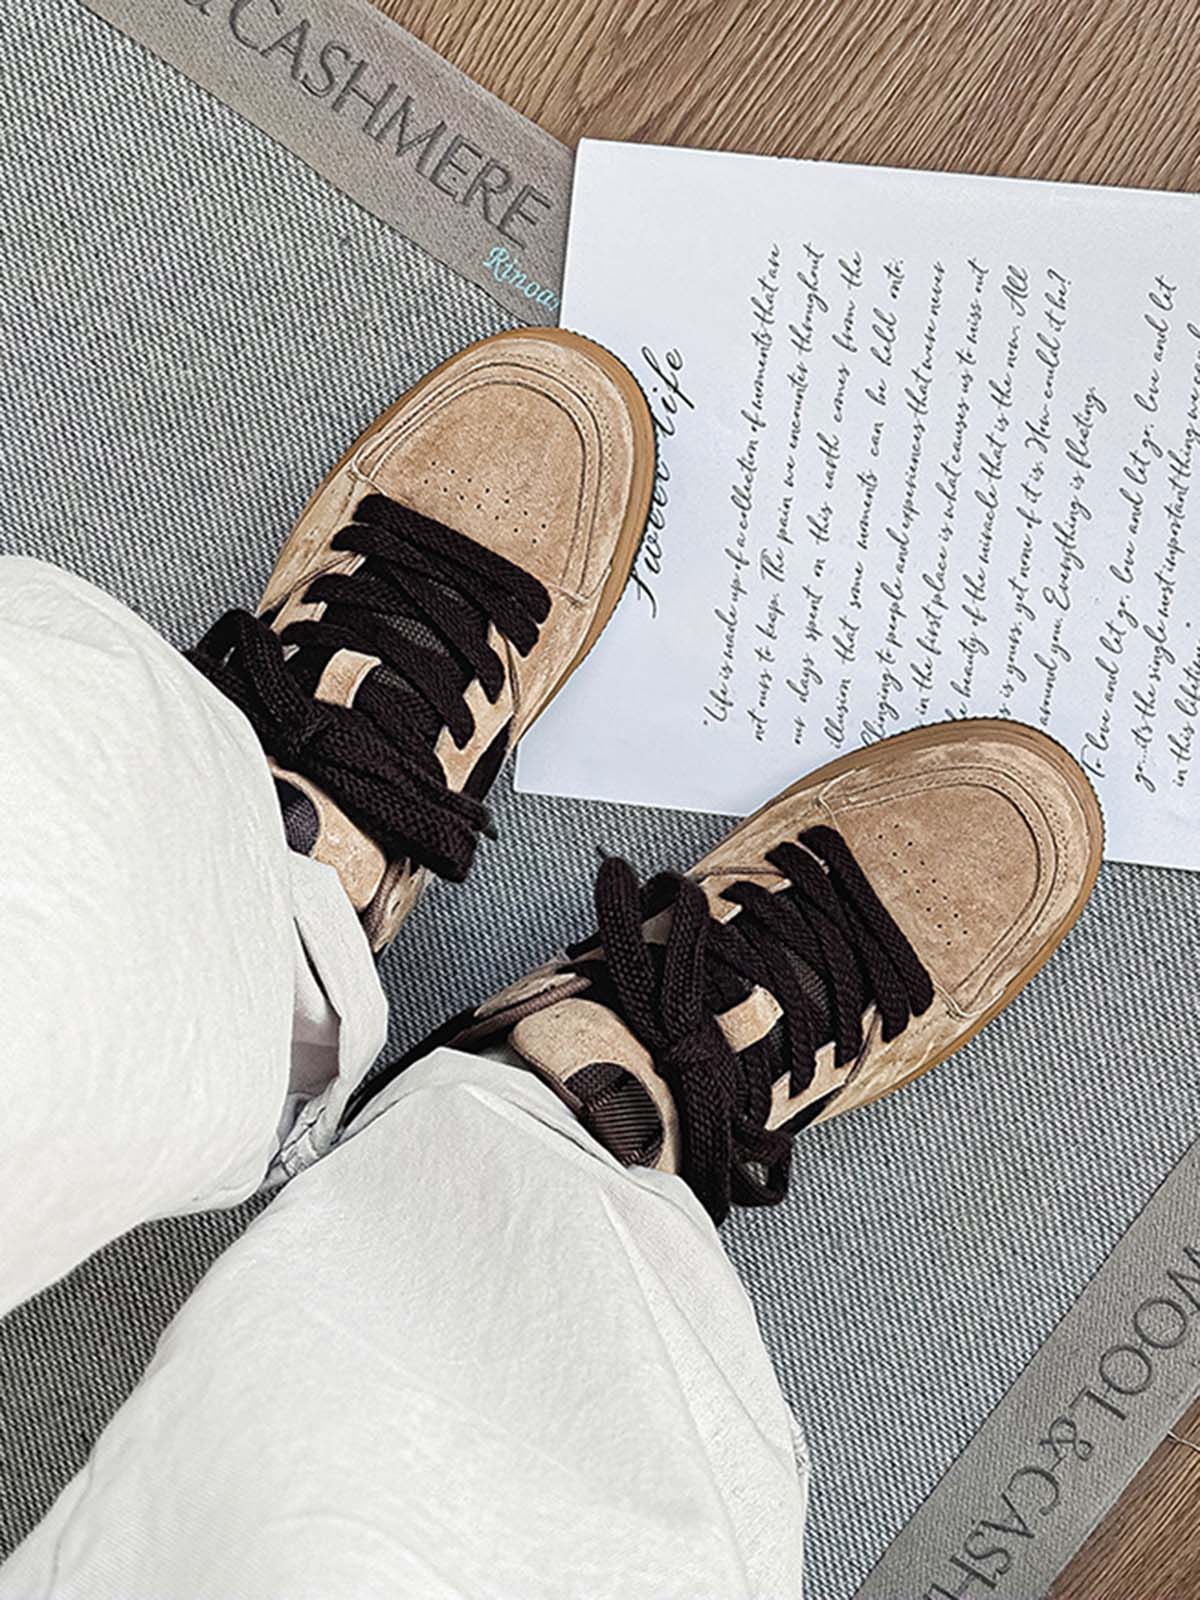 & CASHMERE
Rinoa
life
"Life is made up of a collection of moments that are
not ours to keep. The pain we encounter throughout
our days spent on this earth comes from the
illusion that some moments can be held onto.
Clinging to people and experiences that were never
in the first place is what causes us to miss out
beauty of the miracle that is the now. All
is yours, yet none of it is. How could it be?
around you. Everything is fleeting.
To love and let go, love and let go, love and let
go...it's the single most important thing we
in this
WOOL & CASH